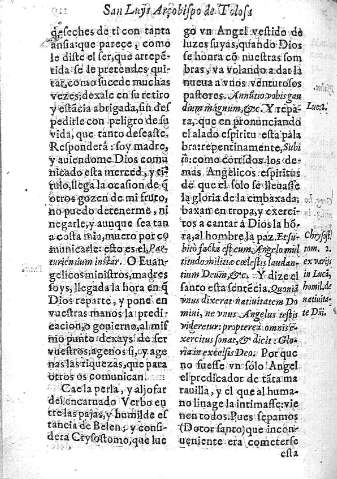 San Luys Arçobispo de Tolosa
q̃ eseches de ti con tanta
ansia que parece, como
le diste el ser, que arrepē-
tida se le pretendes qui-
tar, como sucede muchas
vezes; dexale en su retiro
y estācia abrigada, sin des
pedirle con peligro de su
vida, que tanto deseaste.
Responderà: soy madre,
y auiendome Dios comu
nicado esta merced, y ti-
tulo, llega la ocasion de q̃
otros gozen de mi fruto,
no puedo detenerme, ni
negarle, y aunque sea tan
a costa mia, muero por co
municarle: esto es, Par-
turientium instar. O Euan-
gelicos ministros, madres
soys, llegada la hora en q̃
Dios reparte, y pone en
vuestras manos la predi-
cacion, o gouierno, al mis-
mo punto dexays de ser
vuestros, agenos si, y age
nas las riquezas, que para
otros os comunican.
Cae la perla, y aljofar
del encarnado Verbo en
tre las pajas, y humilde es
tancia de Belen; y consi-
dera Crysostomo, que lue
go vn Angel vestido de
luzes suyas, quando Dios
se honra cō nuestras som
bras, va volando a dar la
nueua a vnos venturosos
pastores. Annuntio vobis gau
dium magnum, &c. Y repa-
ra, que en pronunciando
el alado espiritu esta pala
bra: repentinamente, Subi
tò: como corridos los de-
mas Angelicos espiritus
de que el solo se lleuasse
la gloria de la embaxada,
baxan en tropa, y exerci-
tos a cantar à Dios la hō-
ra, al hombre la paz. Et su-
bitò facta est cum Angelo mul
titudo militiæ cœlestis laudan-
tium Deum, &c. Y dize el
santo esta sentēcia. Quoniā
vnus dixerat natiuitatem Do
mini, ne vnus Angelus testis
videretur: propterea omnis e-
xercitus sonat, & dicit: Glo-
ria in excelsis Deo. Por que
no fuesse vn sólo Angel
el predicador de tāta ma
rauilla, y el que al huma-
no linage la intimasse: vie
nen todos. Pues sepamos
(Dotor santo) que incon-
ueniente era cometerse
esta
Luc. 2.
Chrysost.
tom. 2.
ex varijs
in Lucā,
homil. de
natiuita-
te Dñi.